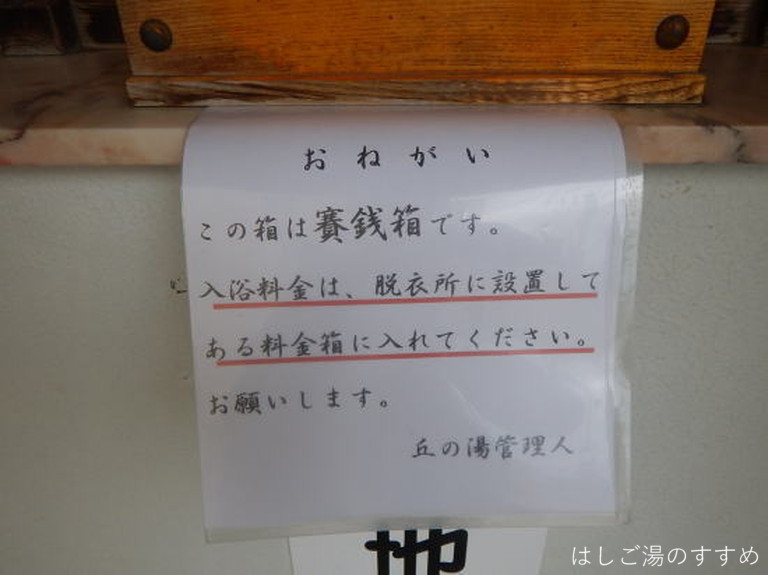 おねがい
この箱は賽銭箱です。
入浴料金は、脱衣所に設置して
ある料金箱に入れてください。
お願いします。
丘の湯管理人
地
はしご湯のすすめ